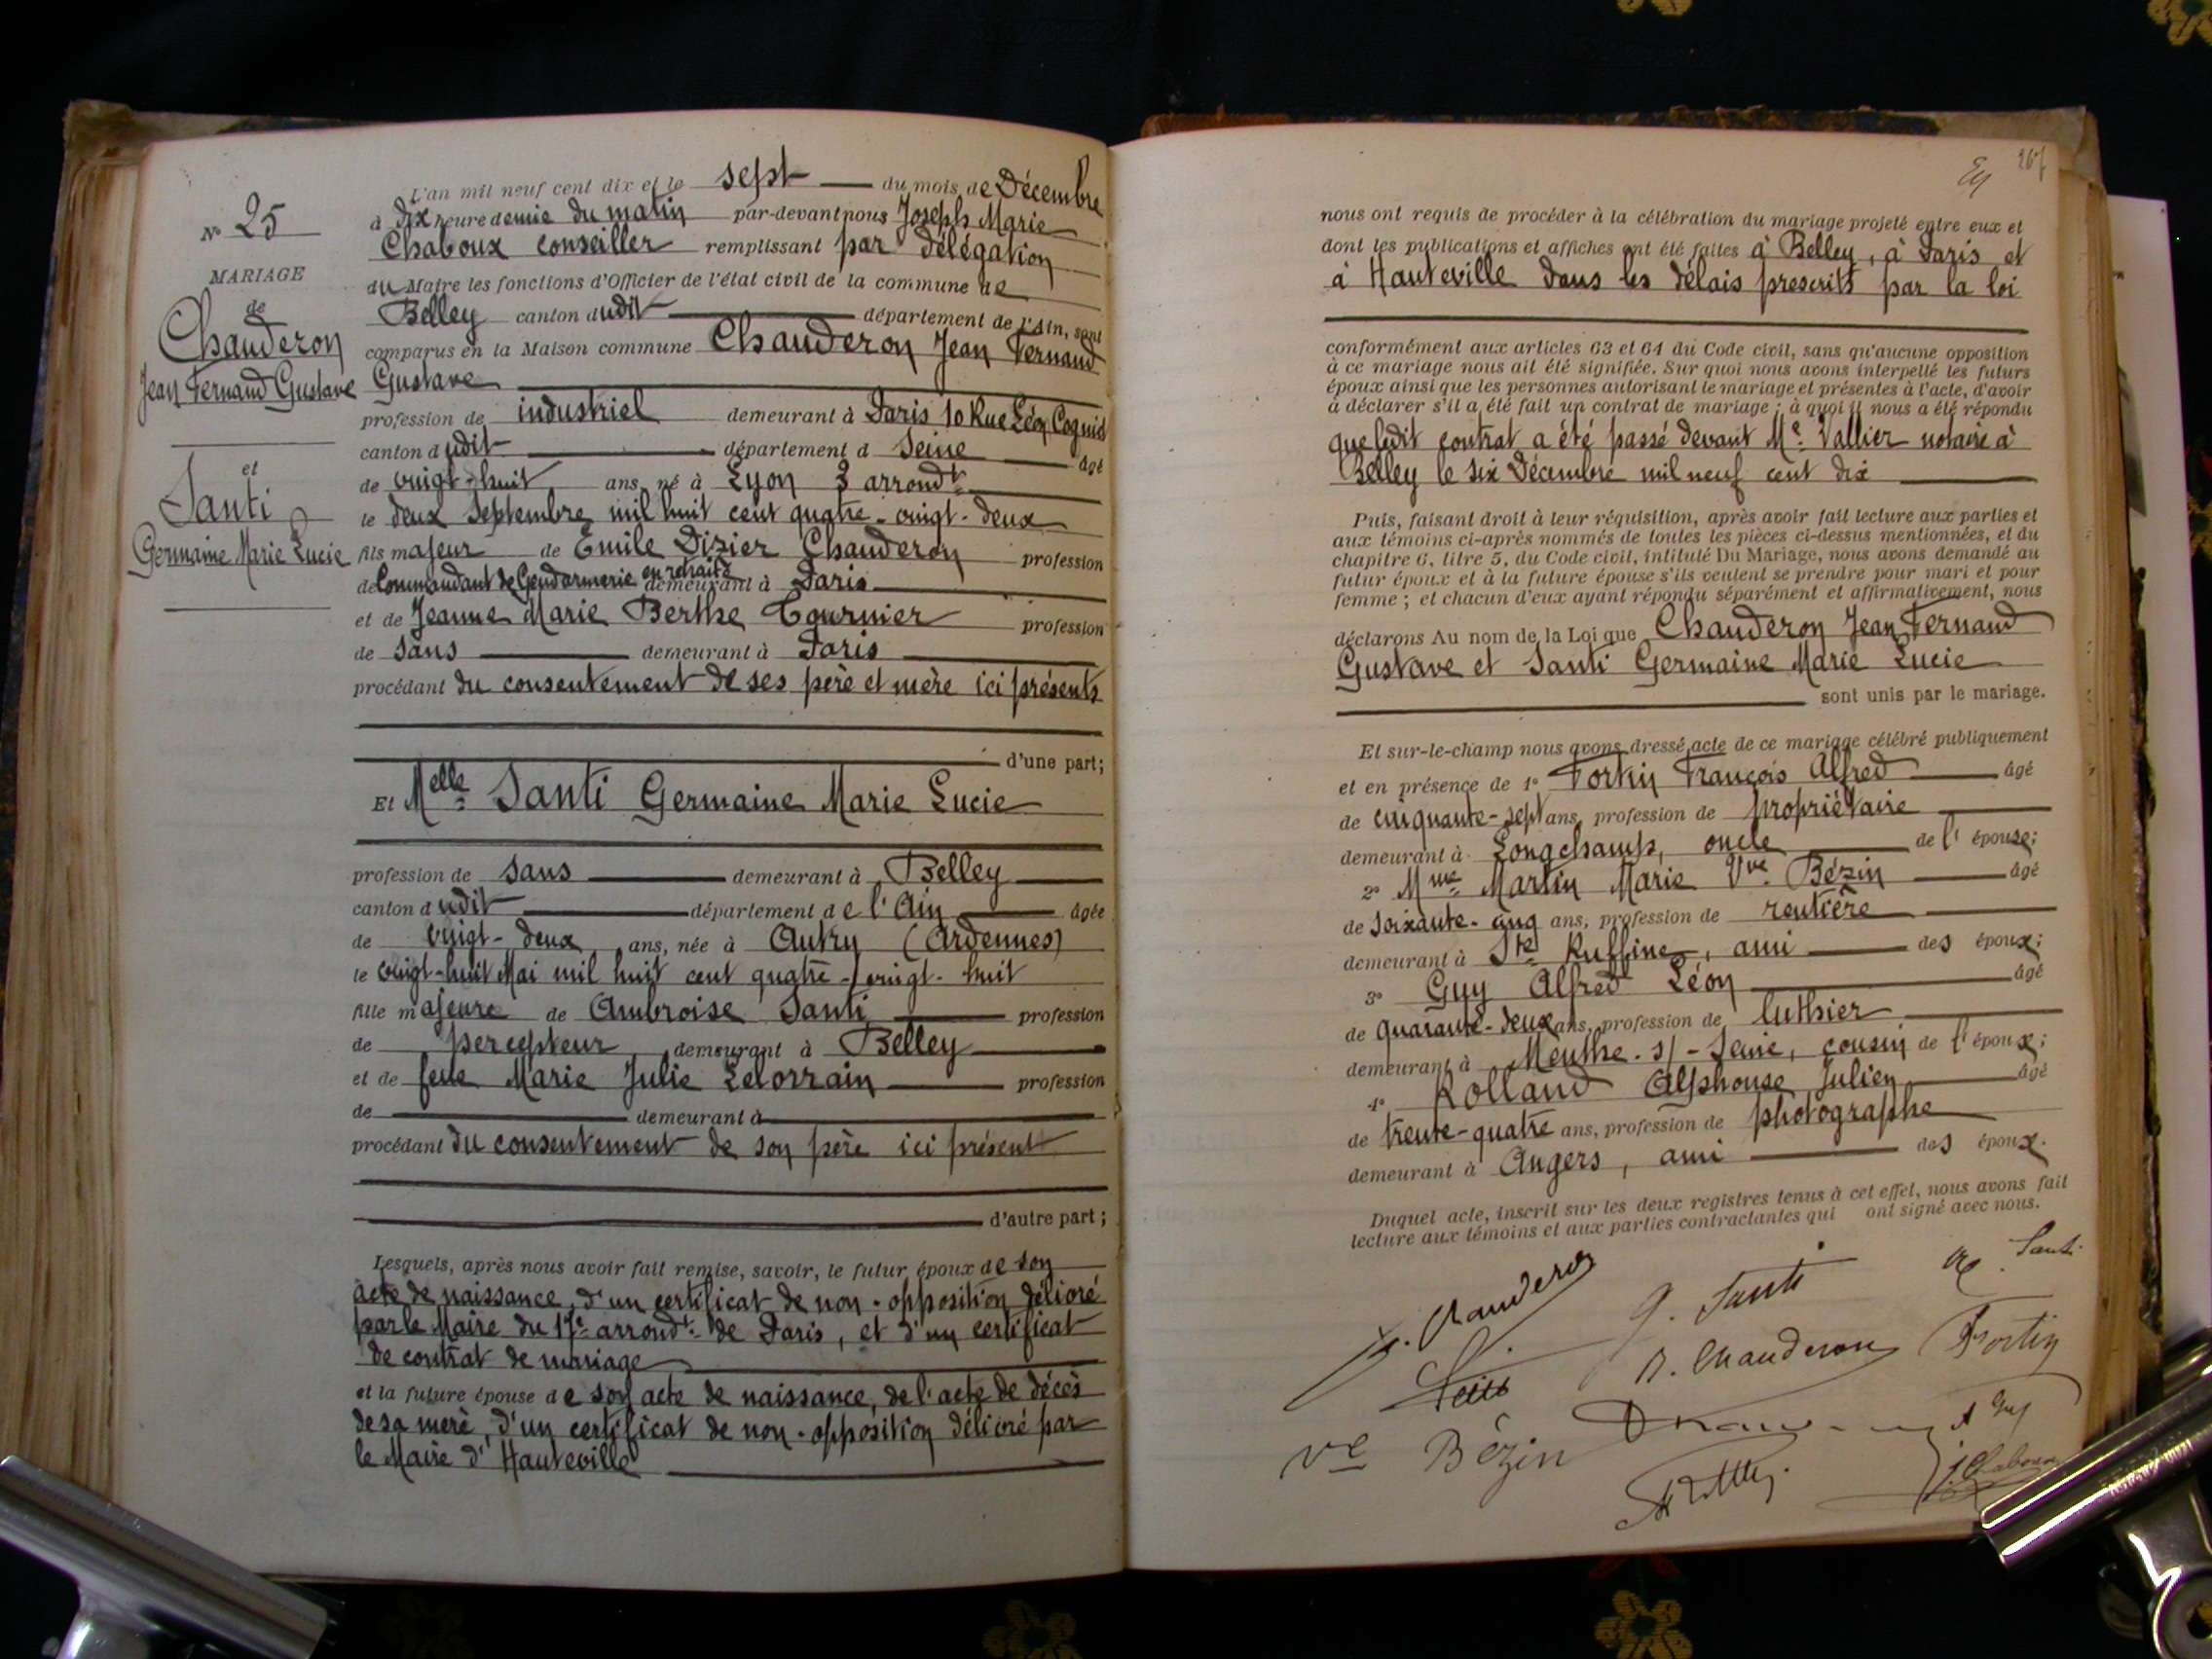 N° 25
MARIAGE
de
Chauderon
Jean Fernand Gustave
et
Santi
Germaine Marie Lucie
L'an mil neuf cent dix et le sept du mois de Décembre
à dix heure demie du matin par-devant nous Joseph Marie
Chaboux conseiller remplissant par délégation
du Maire les fonctions d'Officier de l'état civil de la commune de
Belley canton dudit département de l'Ain, sont
comparus en la Maison commune Chauderon Jean Fernand
Gustave
profession de industriel demeurant à Paris 10 Rue Léon Cogniet
canton dudit département d Seine âgé
de vingt-huit ans, né à Lyon 3 arrondt
le deux Septembre mil huit cent quatre-vingt-deux
fils majeur de Emile Dizier Chauderon profession
de Commandant de Gendarmerie en retraite demeurant à Paris
et de Jeanne Marie Berthe Tournier profession
de sans demeurant à Paris
procédant du consentement de ses père et mère ici présents
d'une part;
Et Melle Santi Germaine Marie Lucie
profession de sans demeurant à Belley
canton dudit département de l'Ain âgée
de vingt-deux ans, née à Autry (Ardennes)
le vingt-huit Mai mil huit cent quatre-vingt-huit
fille majeure de Ambroise Santi profession
de percepteur demeurant à Belley
et de feue Marie Julie Lelorrain profession
de demeurant à
procédant du consentement de son père ici présent
d'autre part;
Lesquels, après nous avoir fait remise, savoir, le futur époux de son
acte de naissance, d'un certificat de non-opposition délivré
par le Maire du 17e arrondt de Paris, et d'un certificat
de contrat de mariage
et la future épouse de son acte de naissance, de l'acte de décès
de sa mère, d'un certificat de non-opposition délivré par
le Maire d'Hauteville
267
nous ont requis de procéder à la célébration du mariage projeté entre eux et
dont les publications et affiches ont été faites à Belley, à Paris et
à Hauteville dans les délais prescrits par la loi
conformément aux articles 63 et 64 du Code civil, sans qu'aucune opposition
à ce mariage nous ait été signifiée. Sur quoi nous avons interpellé les futurs
époux ainsi que les personnes autorisant le mariage et présentes à l'acte, d'avoir
à déclarer s'il a été fait un contrat de mariage; à quoi il nous a été répondu
que ledit contrat a été passé devant Me Vallier notaire à
Belley le six Décembre mil neuf cent dix
Puis, faisant droit à leur réquisition, après avoir fait lecture aux parties et
aux témoins ci-après nommés de toutes les pièces ci-dessus mentionnées, et du
chapitre 6, titre 5, du Code civil, intitulé Du Mariage, nous avons demandé au
futur époux et à la future épouse s'ils veulent se prendre pour mari et pour
femme; et chacun d'eux ayant répondu séparément et affirmativement, nous
déclarons Au nom de la Loi que Chauderon Jean Fernand
Gustave et Santi Germaine Marie Lucie
sont unis par le mariage.
Et sur-le-champ nous avons dressé acte de ce mariage célébré publiquement
et en présence de 1° Fortin François Alfred âgé
de cinquante-sept ans, profession de propriétaire
demeurant à Longchamp, oncle de l'épouse;
2° Mme Martin Marie Vve Bézin âgé
de soixante-cinq ans, profession de rentière
demeurant à Ste Ruffine, ami des époux;
3° Guy Alfred Léon âgé
de quarante-deux ans, profession de luthier
demeurant à Meuthe-s/-Seine, cousin de l'époux;
4° Rolland Alphonse Julien âgé
de trente-quatre ans, profession de photographe
demeurant à Angers, ami des époux.
Duquel acte, inscrit sur les deux registres tenus à cet effet, nous avons fait
lecture aux témoins et aux parties contractantes qui ont signé avec nous.
J. Chauderon
G. Santi
Santi
B. Chauderon
Fortin
Ve Bézin
A Guy
J. Chaboux